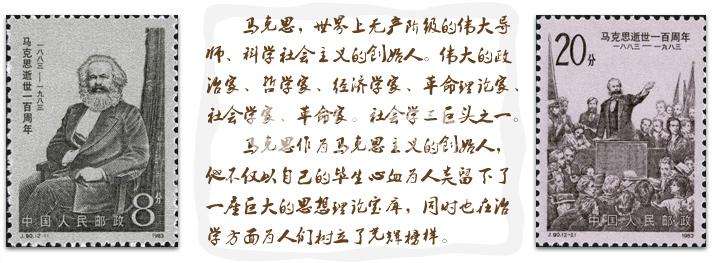 一八八三—一九八三
马克思逝世一百周年
8分
中国人民邮政
J.90.(2-1)
1983
马克思，世界上无产阶级的伟大导
师、科学社会主义的创始人。伟大的政
治家、哲学家、经济学家、革命理论家、
社会学家、革命家。社会学三巨头之一。
马克思作为马克思主义的创始人，
他不仅以自己的毕生心血为人类留下了
一座巨大的思想理论宝库，同时也在治
学方面为人们树立了光辉榜样。
20分
马克思逝世一百周年
一八八三—一九八三
中国人民邮政
J.90.(2-2)
1983